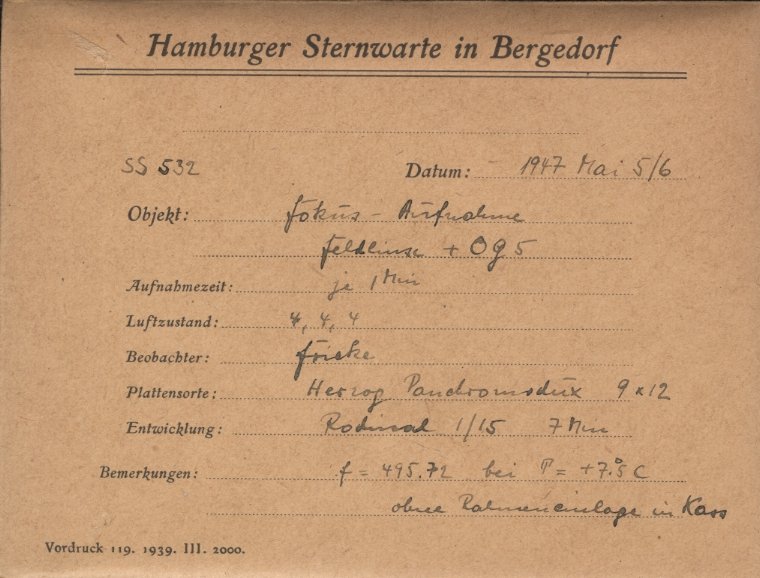 Hamburger Sternwarte in Bergedorf
SS 532 Datum: 1947 Mai 5/6
Objekt: Fokus - Aufnahme
Feldlinse + OG5
Aufnahmezeit: je 1 Min
Luftzustand: 4, 4, 4
Beobachter: Fricke
Plattensorte: Herzog Panchromodux 9 x 12
Entwicklung: Rodinal 1/15 7 Min
Bemerkungen: f = 495.72 bei T = +7.°5 C
ohne Rahmeneinlage in Kass
Vordruck 119. 1939. III. 2000.